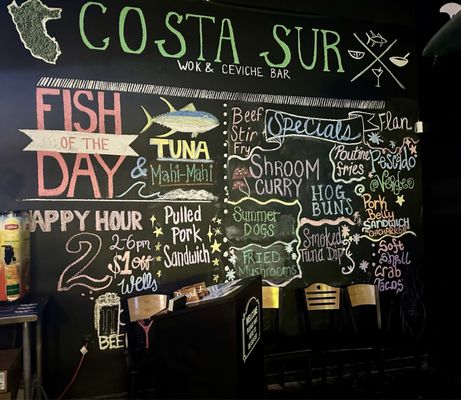 COSTA SUR
WOK & CEVICHE BAR
FISH
OF THE
DAY
TUNA
& Mahi-Mahi
HAPPY HOUR
2-6pm
2
$1 off
Wells
BEER
Pulled
Pork
Sandwich
Beef
Stir
Fry
Specials
Flan
SHROOM
CURRY
Poutine
fries
Pescado
Verde
HOG
BUNS
Summer
DOGS
Pork
Belly
SANDWICH
Smoked
Tuna Dip
FRIED
Mushrooms
Soft
Shell
Crab
Tacos